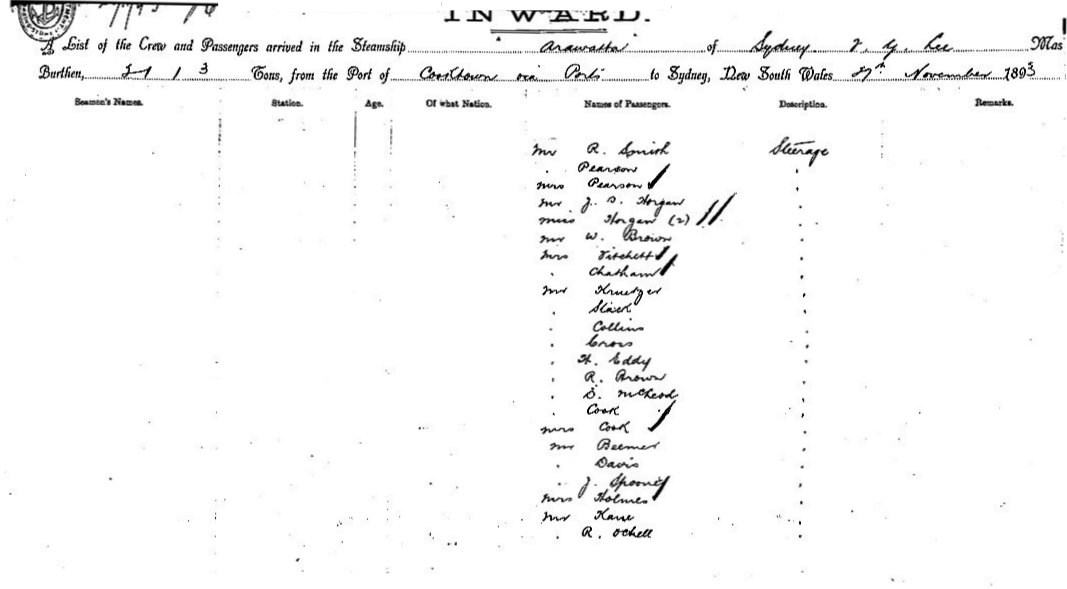 INWARD.
A List of the Crew and Passengers arrived in the Steamship Arawatta of Sydney T. G. Lee Mas
Burthen, 2113 Tons, from the Port of Cooktown via Ports to Sydney, New South Wales 27th November 1893
Seamen's Names. Station. Age. Of what Nation. Names of Passengers. Description. Remarks.
Mr R. Smith Steerage
" Pearson "
Mrs Pearson "
Mr J. S. Horgan "
Miss Horgan (2) "
Mr W. Brown "
Mrs Titchett "
" Chatham "
Mr Krueger "
" Slack "
" Collins "
" Cross "
" H. Eddy "
" R. Brown "
" S. McLeod "
" Cook "
Mrs Cook "
Mr Beemer "
" Davis "
" J. Spooner "
Mrs Holmes "
Mr Kane "
" R. Ochell "